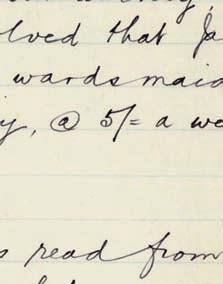 lved that Ja
wardsmaid
y, @ 5/= a we
s read from